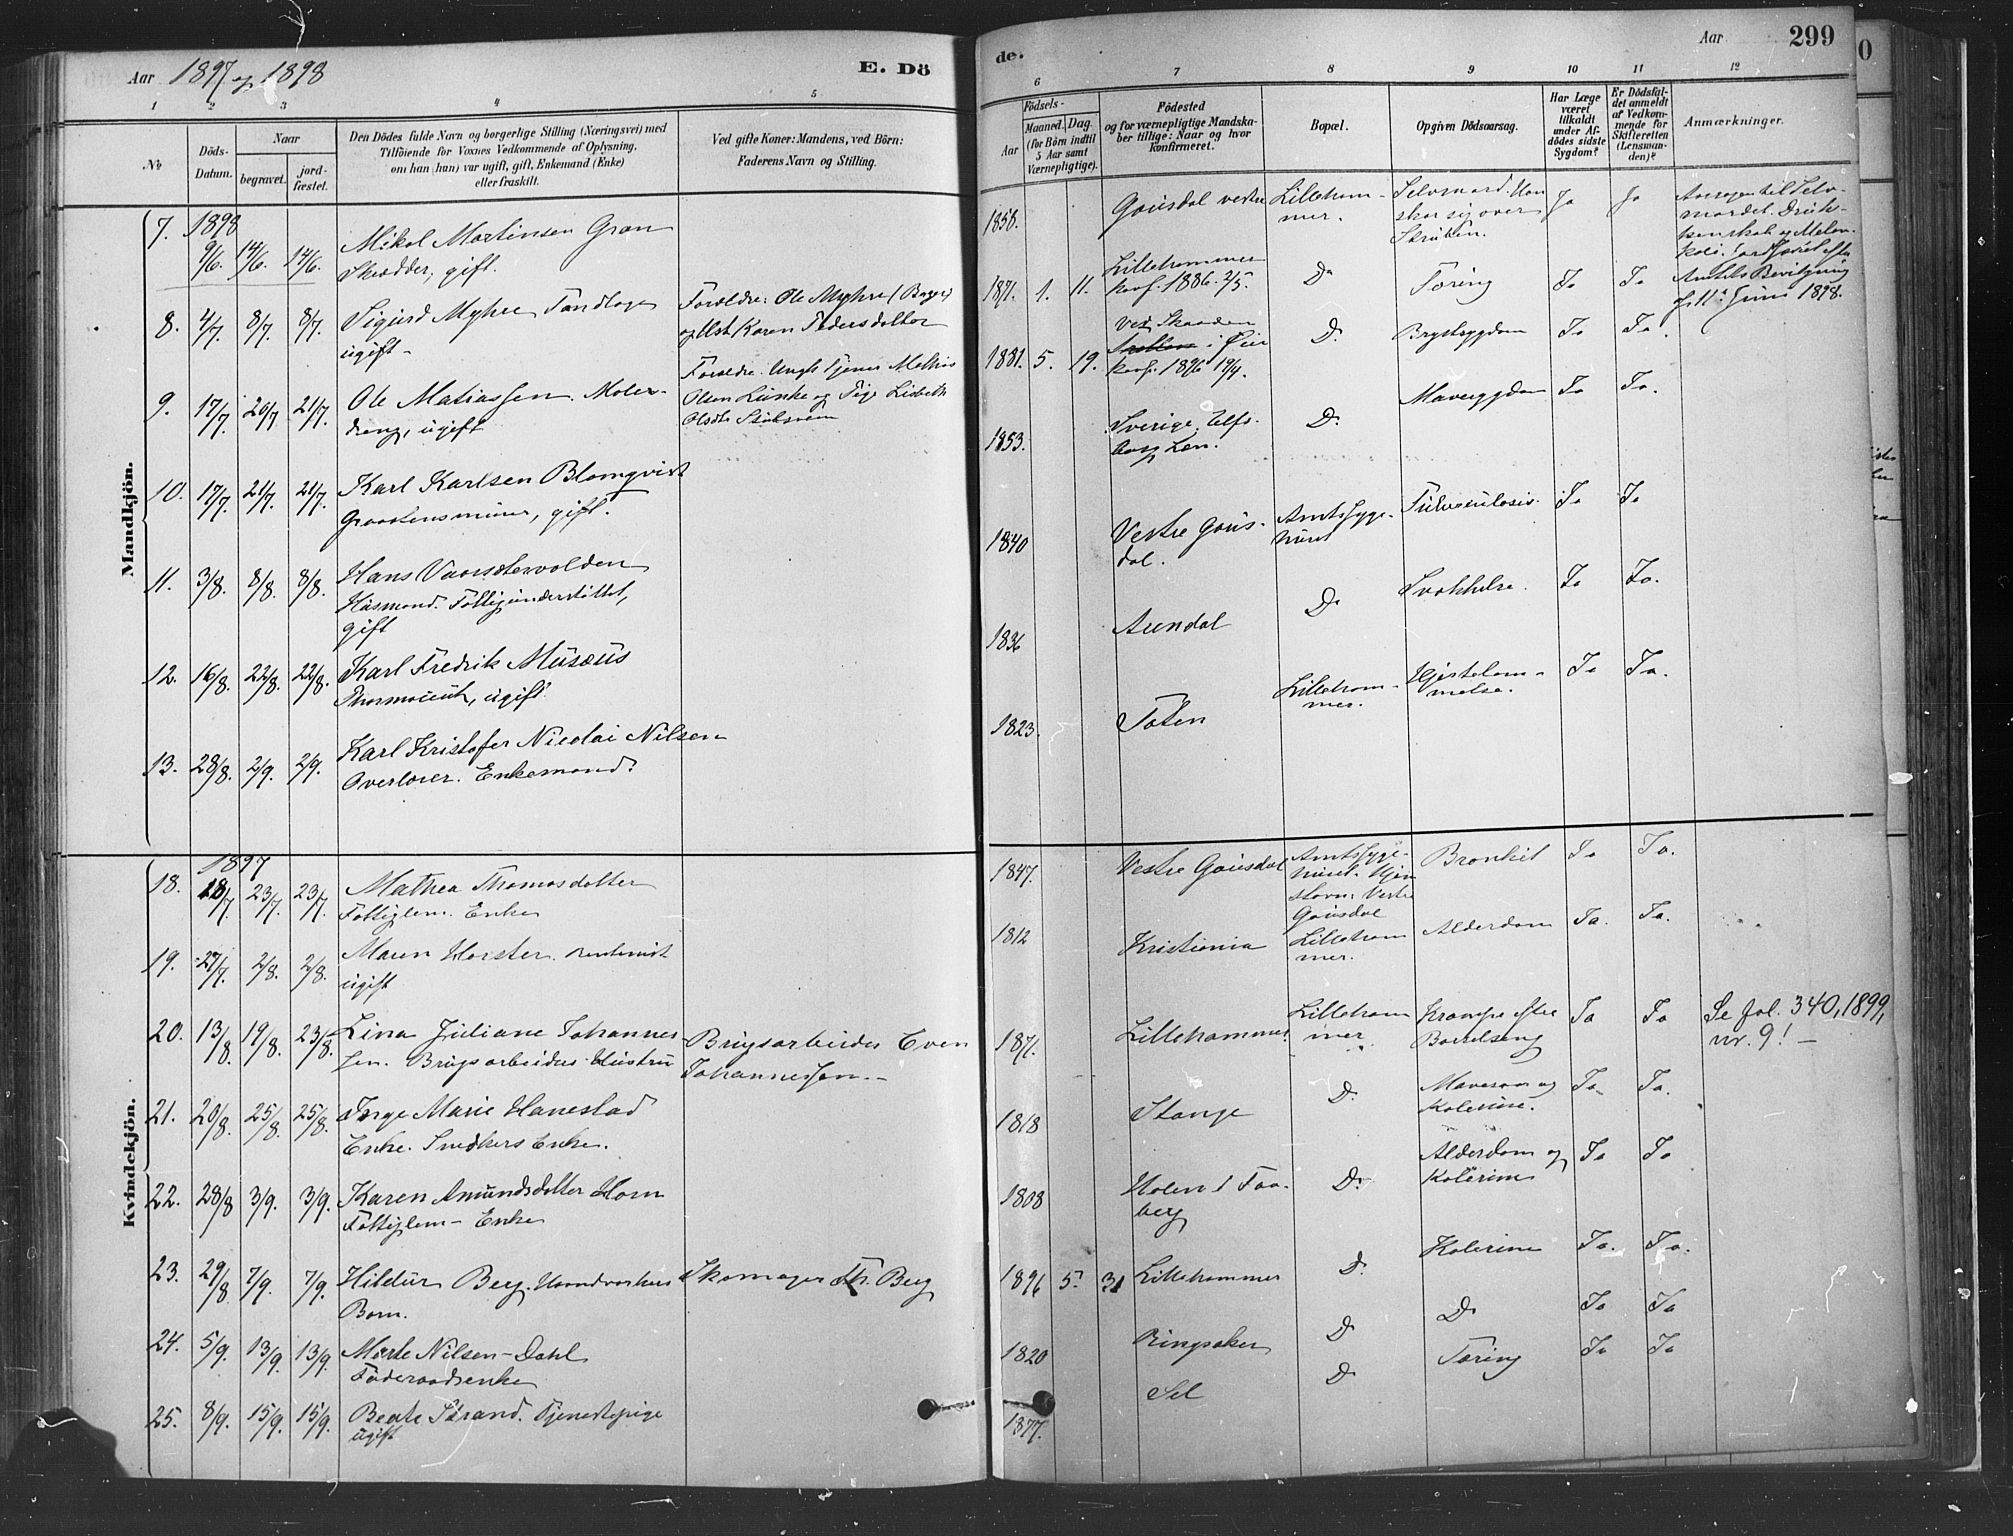 Aar 1897 og 1898
E. Dö
de.
Aar
299
1 2 3 4 5 6 7 8 9 10 11 12
No
Döds-
Datum.
Naar
begravet.
jord-
fæstet.
Den Dödes fulde Navn og borgerlige Stilling (Næringsvei) med
Tilföiende for Voxnes Vedkommende af Oplysning,
om han (hun) var ugift, gift, Enkemand (Enke)
eller fraskilt.
Ved gifte Koner: Mandens, ved Börn:
Faderens Navn og Stilling.
Födsels-
Aar
Maaned. Dag.
(for Börn indtil
5 Aar samt
Værnepligtige).
Födested
og for værnepligtige Mandska-
ber tillige: Naar og hvor
konfirmeret.
Bopæl.
Opgiven Dödsaarsag.
Har Læge
været
tilkaldt
under Af-
dödes sidste
Sygdom?
Er Dödsfal-
det anmeldt
af Vedkom-
mende for
Skifteretten
(Lensman-
den)?
Anmærkninger.
Mandkjön.
7. 1898 9/6. 14/6. 14/6. Mikal Martinsen Gran
Skrædder, gift.
1858. Gausdal vestre Lilleham-
mer. Selvmord. Han
skar sig over
Struben. Ja Ja
8. 4/7. 8/7. 8/7. Sigurd Myhre Tandlæge
ugift
Forældre: Ole Myhre (Bager)
1871. 1. 11. Lillehammer
konf. 1886 2/5. Do Tæring Ja Ja
Amtets Bevilgning
11te Juni 1898.
9. 17/7. 20/7 21/7. Ole Matiassen. Maler-
dreng, ugift
Forældre. Ungk. Tjener Mathias
Olsen Lunke og Pige Lisbeth
1881. 5. 19. ved Skaaden
i Øier
konf. 1896 19/4. Do Brystsygdom Ja Ja.
10. 17/7. 21/7. 21/7. Karl Karlsen Blomqvist
Graastensmurer, gift.
1853. Sverige. Elfs-
borgs Len. Do Mavesygdom Ja Ja.
11. 3/8. 8/8. 8/8. Hans Vaarsætervolden
Husmand. Fattigunderstöttet,
gift
1840 Vestre Gaus-
dal. Amtssyge-
huset Tuberculosis. Ja Ja
12. 16/8. 22/8. 22/8. Karl Fredrik Musæus
Pharmaceut, ugift
1836 Arendal Do Svækkelse. Ja Ja.
13. 28/8. 2/9. 2/9. Karl Kristofer Nicolai Nilsen
Overlærer. Enkemand.
1823. Toten Lilleham-
mer. Hjertelam-
melse. Ja Ja.
Kvindekjön.
1897
18. 18/7. 23/7. 23/7. Mathea Thomasdatter
Fattiglem. Enke
1847. Vestre Gausdal Amtssyge-
huset. Hjem
stavn: Vestre
Gausdal Bronkit Ja Ja.
19. 27/7. 2/8. 2/8. Maren Horster. Rentenist
ugift
1812 Kristiania Lilleham
mer. Alderdom Ja. Ja.
20. 13/8. 19/8. 23/8. Lina Juliane Johannes
sen. Brugsarbeiders Hustru
Brugsarbeider Even
Johannessen.
1871. Lillehammer. Lilleham
mer Krampe efter
Barselseng Ja Ja Se fol. 340, 1899,
nr. 9!
21. 20/8. 25/8. 25/8. Inge Marie Hanestad
Enke. Snedkers Enke.
1818 Stange Do Mavesaar og
Kolerine. Ja Ja.
22. 28/8 3/9. 3/9. Karen Amundsdatter Horn
Fattiglem - Enke
1808 Holen i Faa-
berg Do Alderdom og
Kolerine Ja Ja
23. 29/8 7/9. 7/9. Hildur Berg. Haandværkers
Barn.
Skomager Th. Berg
1896 5. 31 Lillehammer Do Kolerine Ja. Ja.
24. 5/9. 13/9. 13/9. Marte Nilsen-Dahl
Föderaadsenke
1820 Ringsaker Do Do Ja Ja
25. 8/9. 15/9. 15/9. Beate Strand. Tjenestepige
ugift
1877. Sel Do Tæring Ja Ja